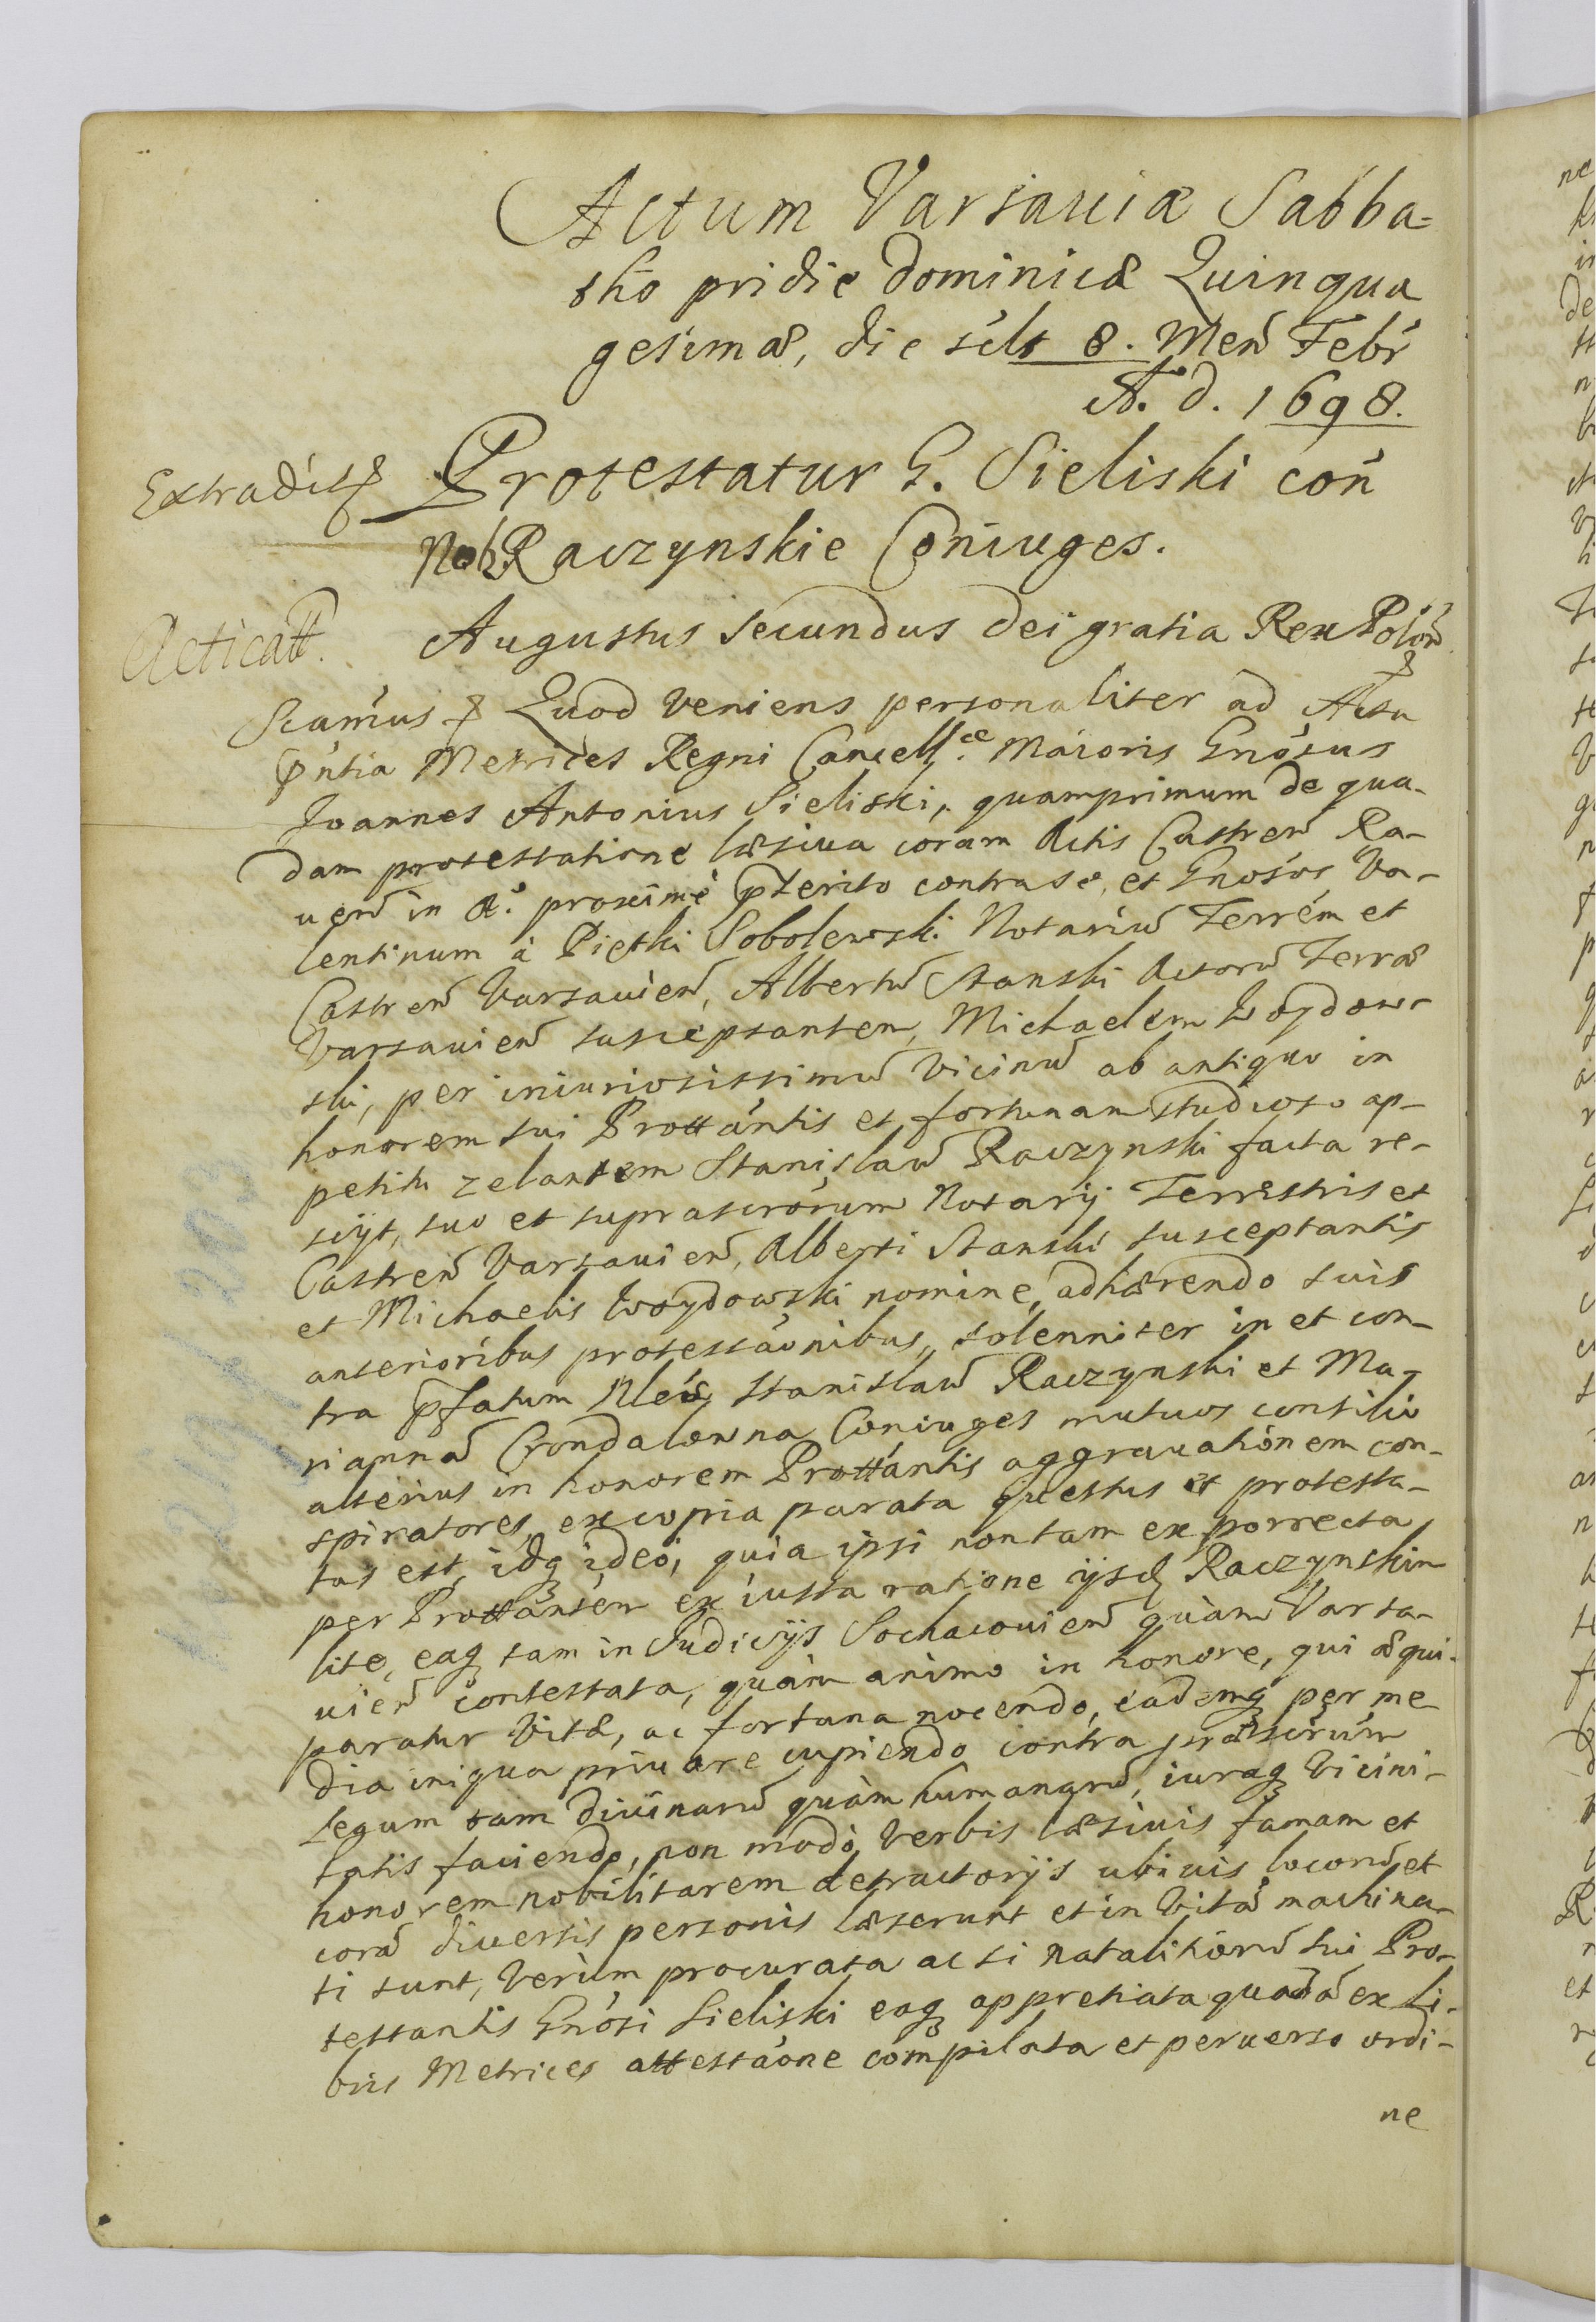 Actum Varsauiæ Sabba-
tho pridie Dominicæ Quinqua
gesimæ, die scilt 8. Men̄ Febr̄
A.º d. 1698.
Extradit
Protestatur G. Sieliski con̄
Nob. Raczynskie Coniuges.
Acticatt.
Augustus Secundus Dei gratia Rex Polon̄
Scamus Quod veniens personaliter ad Acta
pn̄tia Metrices Regni Cancell.æ Maioris Gnōsus
Joannes Antonius Sieliski, quamprimum de qua-
dam protestatione læsiua coram Actis Castren̄ Ra-
uen̄ in A.º proximè pterito contra se, et Gnōsos Va-
lentinum à Pietki Sobolewski Notariū Terrēm et
Castren̄ Varsauien̄, Albertū Stanski Actorū Terræ
Varsauien̄ susceptantem, Michaelem Woydow-
ski, per iniuriosissimū Vicinū ab antiquo in
honorem sui Prottántis et fortunam studioso ap-
petitu zelantem Stanislaū Raczynski facta re-
sciyt, suo et suprascrōrum Notarij Terrestris et
Castren̄ Varsauien̄, Alberti Stanski susceptantis
et Michaelis Woydowski nomine, adhærendo suis
anterioribus protestāonibus, solenniter in et con-
tra pfatum Stanislaū Raczynski et Ma-
riannā Coniuges mutuos consilio
alterius in honorem Prottántis aggrauationem con-
spiratores, ex copia parata questus et protesta-
tus est, idq ideo, quia ipsi non tam exporrecta
per Prottántem ex iusta ratione ijsd Raczynskim
lite, eaq tam in Judicijs Sochacouien̄ quàm Varsa-
uien̄ contestata, quàm animo in honore, qui æqui-
paratur Vitæ, ac fortuna nocendo, eademq per me
dia iniqua priuare cupiendo contra præscrūm
Legum tam diuinarū quàm humanarū, iuraq Vicini-
tatis faciendo, non modò verbis læsiuis famam et
honorem nobilitarem detractorijs ubiuis locorū et
corā diuersis personis læserunt et in Vitā machina-
ti sunt, verùm procurata ac si natalitiorū sui Pro-
testantis Gnōsi Sieliski eaq appretiata quadā ex Li-
bris Metrices attestāone compilata et peruerso ordi-
ne